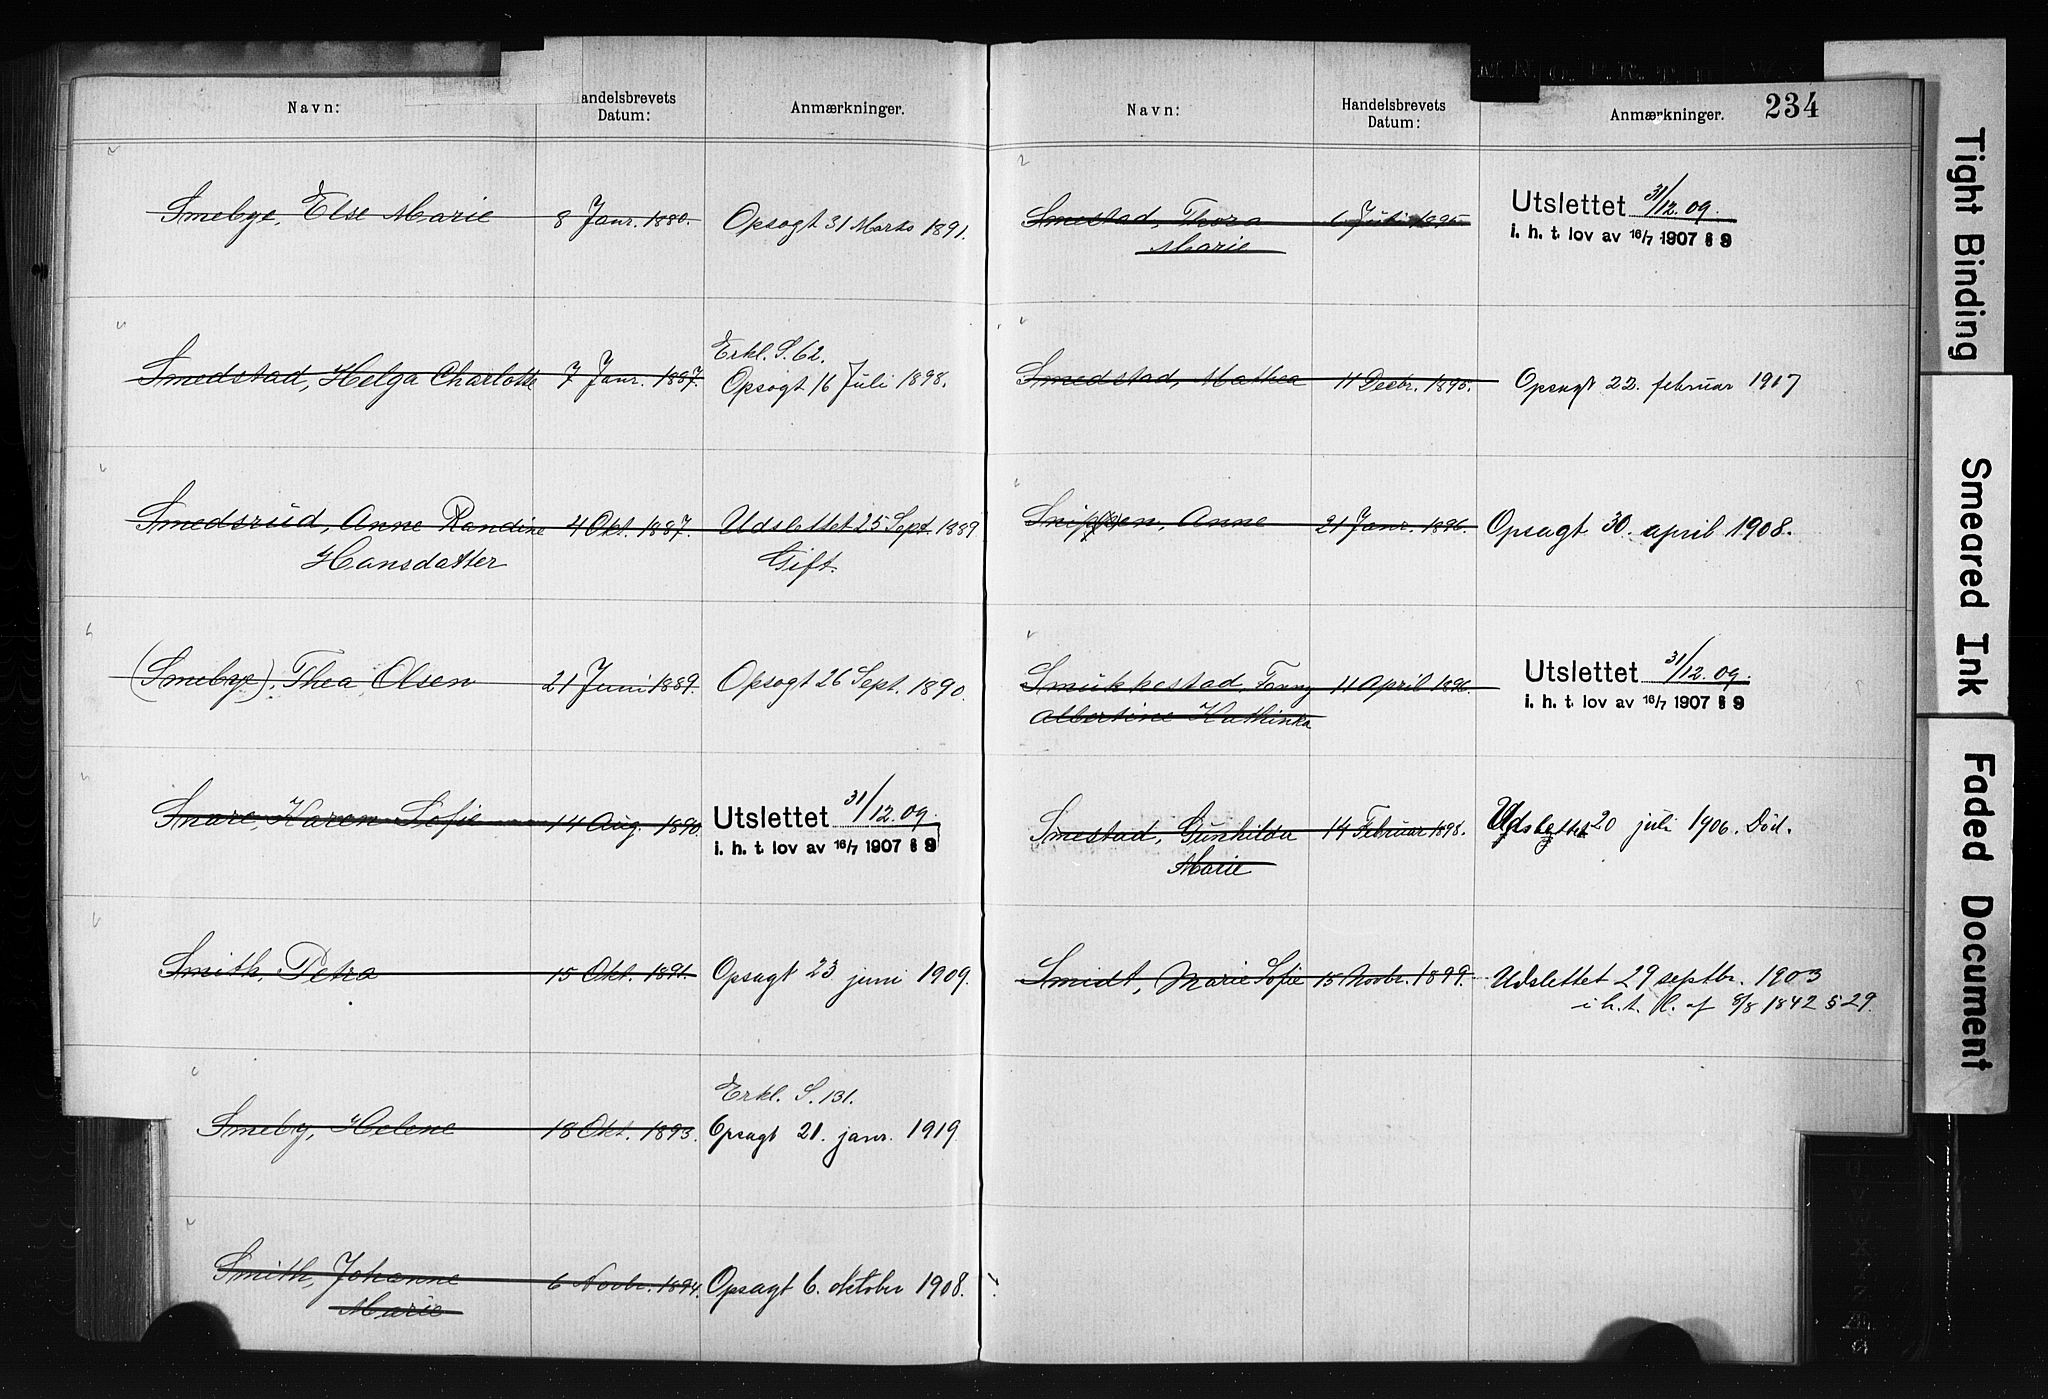 Navn:
Handelsbrevets
Datum:
Anmærkninger.
Smebye, Else Marie 8 Janr. 1880. Opsagt 31 Marts 1891.
Erkl. S. 62.
Smedstad, Helga Charlotte 7 Janr. 1887. Opsagt 16 Juli 1898.
Smedsrud, Anne Randine 4 Okt. 1887. Udslettet 25 Sept. 1889
Hansdatter Gift.
(Smebye), Thea Olsen 21 Juni 1889. Opsagt 26 Sept. 1890
Snare, Karen Sofie 14 Aug. 1890. Utslettet 31/12.09.
i. h. t. lov av 16/7 1907 § 9
Smith, Petra 15 Okt. 1891. Opsagt 23 juni 1909.
Erkl. S. 131.
Smeby, Helene 18 Okt. 1893. Opsagt 21. janr. 1919
Smith, Johanne 6 Novbr. 1894. Opsagt 6. oktober 1908.
Marie
Navn:
Handelsbrevets
Datum:
Anmærkninger.
234
Smestad, Thora 6 Juli 1895. Utslettet 31/12.09.
Marie i. h. t. lov av 16/7 1907 § 9
Smedstad, Mathea 11 Decbr. 1895. Opsagt 22. februar 1917
Anne 21 Janr. 1896. Opsagt 30. april 1908.
Smukkestad, Fanny 11 April 1896. Utslettet 31/12.09.
Albertine Kathinka i. h. t. lov av 16/7 1907 § 9
Smestad, Gunhilda 14 Februar 1898. Udslettet 20 juli 1906. Död.
Marie
Smidt, Marie Sofie 15 Novbr. 1899. Udslettet 29 septbr. 1903
i h. t. l. af 8/8 1842 § 29.
Tight Binding
Smeared Ink
Faded Document